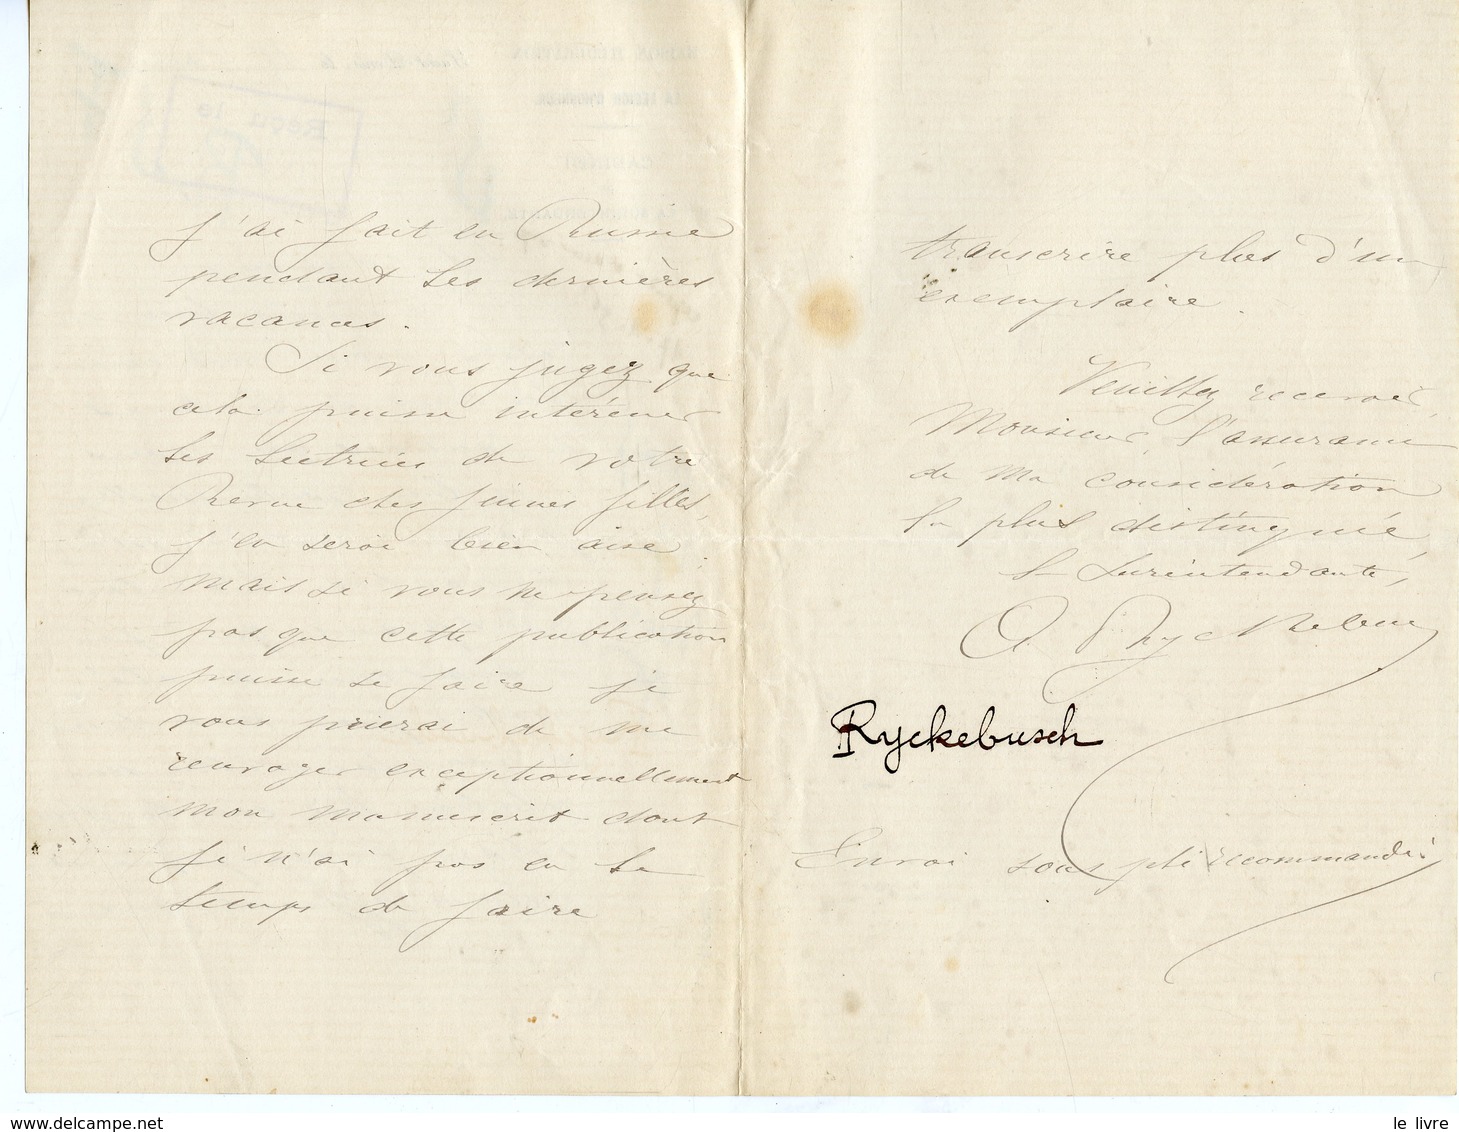 j'ai fait en Russie
pendant les dernières
vacances.
Si vous jugez que
cela puisse intéresser
les lectrices de votre
Revue des jeunes filles,
j'en serai bien aise.
mais si vous ne pensez
pas que cette publication
puisse se faire je
vous prierai de me
renvoyer exceptionnellement
mon manuscrit dont
je n'ai pas eu le
temps de faire
transcrire plus d'un
exemplaire.
Veuillez recevoir,
Monsieur, l'assurance
de ma considération
la plus distinguée,
la surintendante,
A Ryckebusch
Ryckebusch
Envoi sous pli recommandé.
le livre